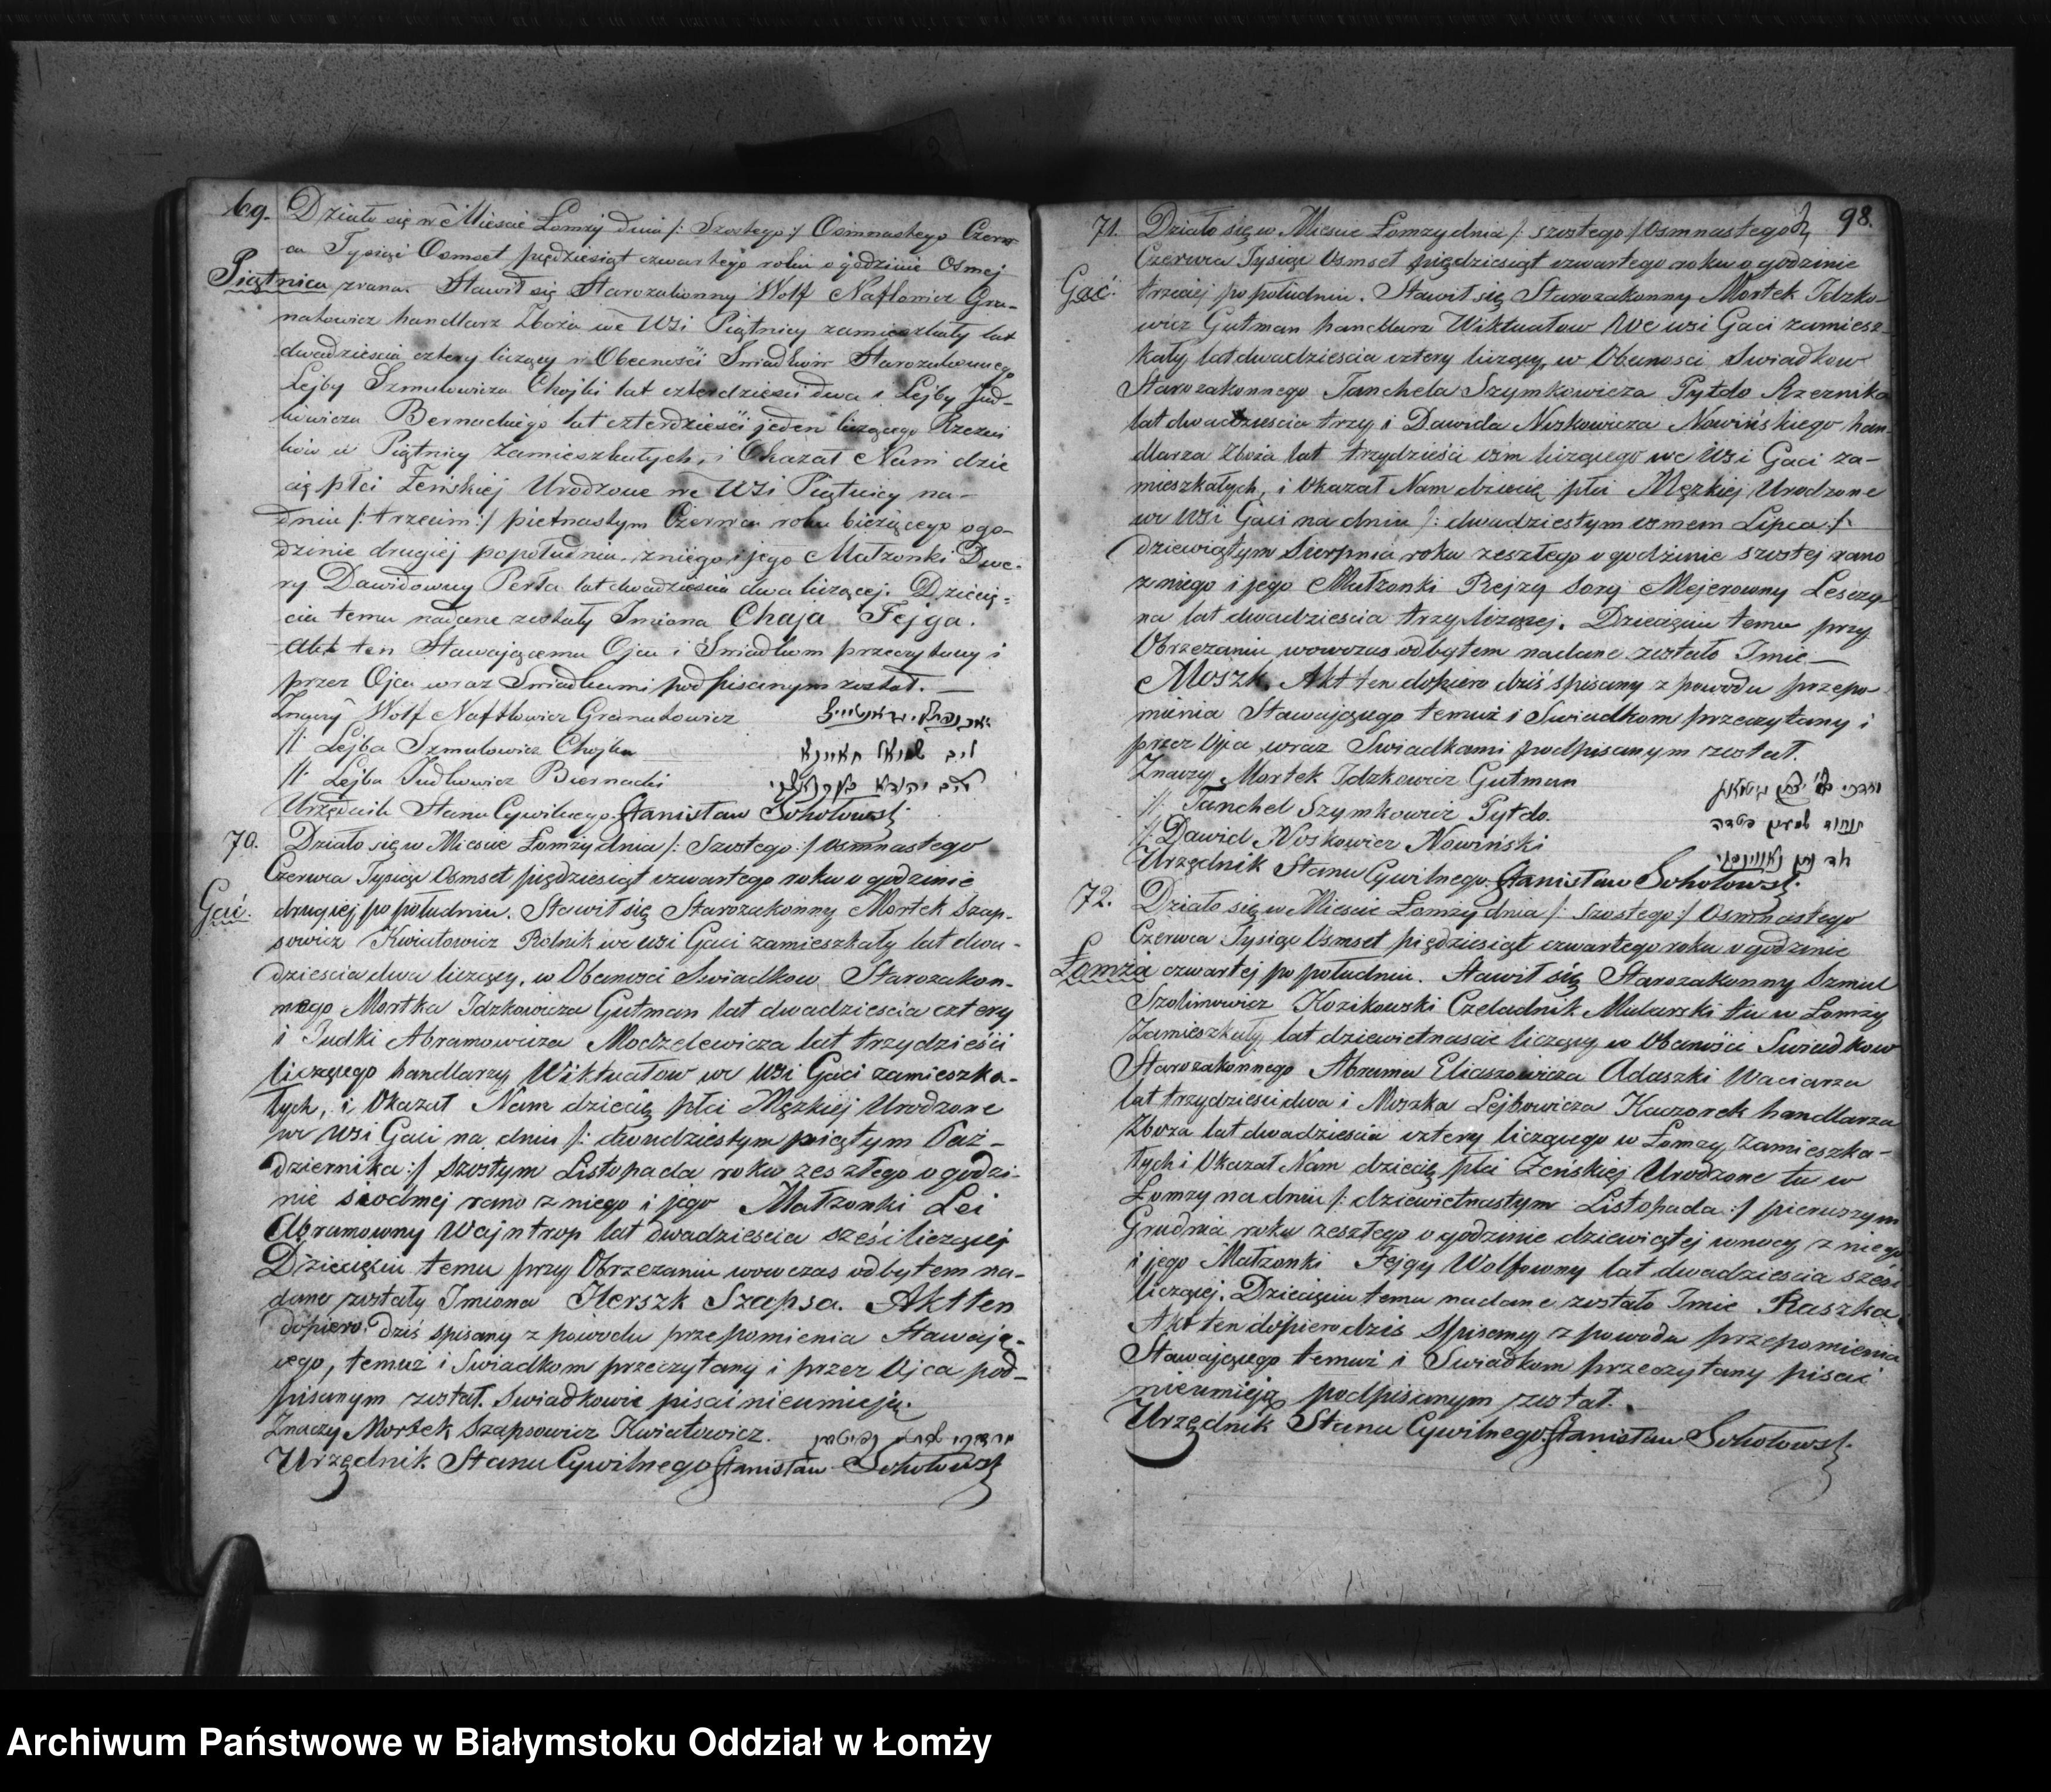 69. Działo się w Mieście Łomży dnia /: Szóstego :/ Osmnastego Czerw-
ca Tysiąc Osmset pięćdziesiąt czwartego roku o godzinie Osmej
Piątnica zrana. Stawił się Starozakonny Wolf Naftowicz Gra-
natowicz handlarz Zboża we Wsi Piątnicy zamieszkały lat
dwadzieścia cztery liczący w Obecności Świadków Starozakonnego
Lejby Szmulowicza Chojki lat czterdzieści dwa i Lejby Jud-
kowicza Bernackiego lat czterdzieści jeden liczącego Rzeźni
ków w Piątnicy Zamieszkałych, i Okazał Nam dzie
cię płci Żeńskiej Urodzone we Wsi Piątnicy na-
dniu /: trzecim :/ piętnastym Czerwca roku bieżącego ogo-
dzinie drugiej popołudniu, zniego i jego Małżonki Dwe-
ry Dawidowny Perła lat dwadzieścia dwa liczącej. Dziecię-
ciu temu nadane zostały Imiona Chaja Fejga.
Akt ten Stawającemu Ojcu i Świadkom przeczytany i
przez Ojca wraz Świadkami podpisanym został. —
Znaczy Wolf Naftłowicz Granatowicz
//: Lejba Szmulowicz Chojka ליב שמואל חאיינקא
//: Lejba Judkowicz Biernacki
Urzędnik Stanu Cywilnego Stanisław Sokołowski
70. Działo się w Mieście Łomży dnia /: Szóstego :/ osmnastego
Czerwca Tysiąc Osmset pięćdziesiąt czwartego roku o godzinie
Gać. drugiej po południu. Stawił się Starozakonny Mortek Szap-
sowicz Kwiatowicz Rolnik we wsi Gaci zamieszkały lat dwa-
dzieścia dwa liczący, w Obecności Świadkow Starozakon-
nego Mortka Idzkowicza Gutman lat dwadzieścia cztery
i Judki Abramowicza Modzelewicza lat trzydzieści
liczącego handlarzy Wiktuałow we Wsi Gaci zamieszka-
łych, i Okazał Nam dziecię płci Męzkiej Urodzone
we Wsi Gaci na dniu /: dwudziestym piątym Paź-
dziernika :/ Szóstym Listopada roku zeszłego o godzi-
nie siodmej rano z niego i jego Małżonki Lei
Abramowny Wajntrop lat dwadzieścia sześć liczącej
Dziecięciu temu przy Obrzezaniu wowczas odbytem na-
dane zostały Imiona Herszk Szapsa. Akt ten
dopiero dziś spisany z powodu przepomienia Stawają-
cego, temuż i Swiadkom przeczytany i przez Ojca pod-
pisanym został. Swiadkowie pisać nieumieją.
Znaczy Mortek Szapsowicz Kwiatowicz.
Urzędnik Stanu Cywilnego Stanisław Sokołowski
98.
71. Działo się w Mieście Łomży dnia /: szóstego :/ Osmnastego
Czerwca Tysiąc Osmset pięćdziesiąt czwartego roku o godzinie
Gać. trzeciej po południu. Stawił się Starozakonny Mortek Idzko-
wicz Gutman handlarz Wiktuałow We wsi Gaci zamiesz-
kały lat dwadzieścia cztery liczący, w Obecnosci Swiadkow
Starozakonnego Tanchela Szymkowicza Pytdo Rzeznika
lat dwadzieścia trzy i Dawida Noskowicza Nowińskiego han-
dlarza Zboża lat trzydzieści osm liczącego we Wsi Gaci za-
mieszkałych, i Okazał Nam dziecię płci Męzkiej Urodzone
we Wsi Gaci na dniu /: dwudziestym osmem Lipca :/
dziewiątym Sierpnia roku zeszłego o godzinie szóstej rano
z niego i jego Małżonki Rejzy Sory Mejerowny Leszczy-
na lat dwadzieścia trzy liczącej. Dziecięciu temu przy
Obrzezaniu wowczas odbytem nadane zostało Imie —
Moszk. Akt ten dopiero dziś spisany z powodu przepo-
mienia Stawającego temuż i Swiadkom przeczytany i
przez Ojca wraz Swiadkami podpisanym został.
Znaczy Mortek Idzkowicz Gutman
//: Tanchel Szymkowicz Pytdo
//: Dawid Noskowicz Nowiński
Urzędnik Stanu Cywilnego Stanisław Sokołowski
72. Działo się w Mieście Łomży dnia /: szóstego :/ Osmnastego
Czerwca Tysiąc Osmset pięćdziesiąt czwartego roku o godzinie
Łomża czwartej po południu. Stawił się Starozakonny Szmul
Szolimowicz Kozikowski Czeladnik Mularski tu w Łomży
Zamieszkały lat dziewietnascie liczący w Obecności Swiadkow
Starozakonnego Abrama Eliaszowicza Adaszki Waciarza
lat trzydzieści dwa i Moszka Lejbowicza Kaczorek handlarza
Zboża lat dwadzieścia cztery liczącego w Łomży Zamieszka-
łych i Okazał Nam dziecię płci Żeńskiej Urodzone tu w
Łomży na dniu /: dziewietnastym Listopada :/ pierwszym
Grudnia roku zeszłego o godzinie dziewiątej wnocy z niego
i jego Małżonki Fejgy Wolfowny lat dwadzieścia sześć
liczącej. Dziecięciu temu nadane zostało Imie Raszka.
Akt ten dopiero dziś Spisany z powodu przepomienia
Stawającego temuż i Swiadkom przeczytany pisać
nieumieją podpisanym został.
Urzędnik Stanu Cywilnego Stanisław Sokołowski
Archiwum Państwowe w Białymstoku Oddział w Łomży